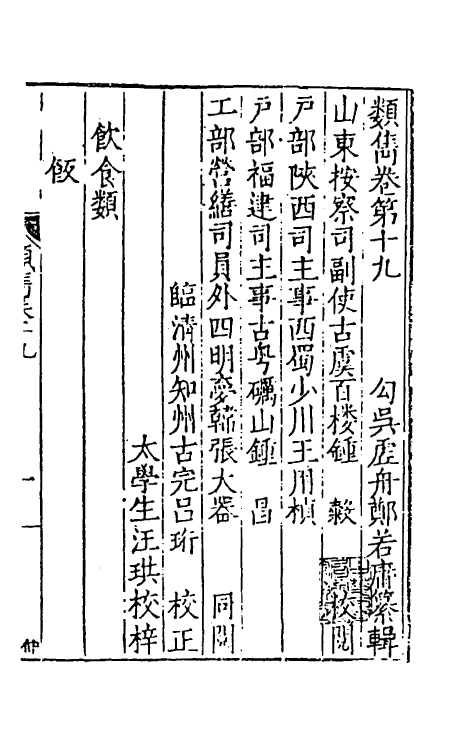 類雋卷第十九　勾吳虛舟鄭若庸纂輯
山東按察司副使古虞百樓鍾　穀　校閱
戶部陝西司主事西蜀少川王用楨
戶部福建司主事古粵礪山鍾　昌
工部營繕司員外四明夢韓張大器　同閱
臨濟州知州古完呂珩　校正
太學生汪珙校梓
飲食類
飯
類雋卷十九　一